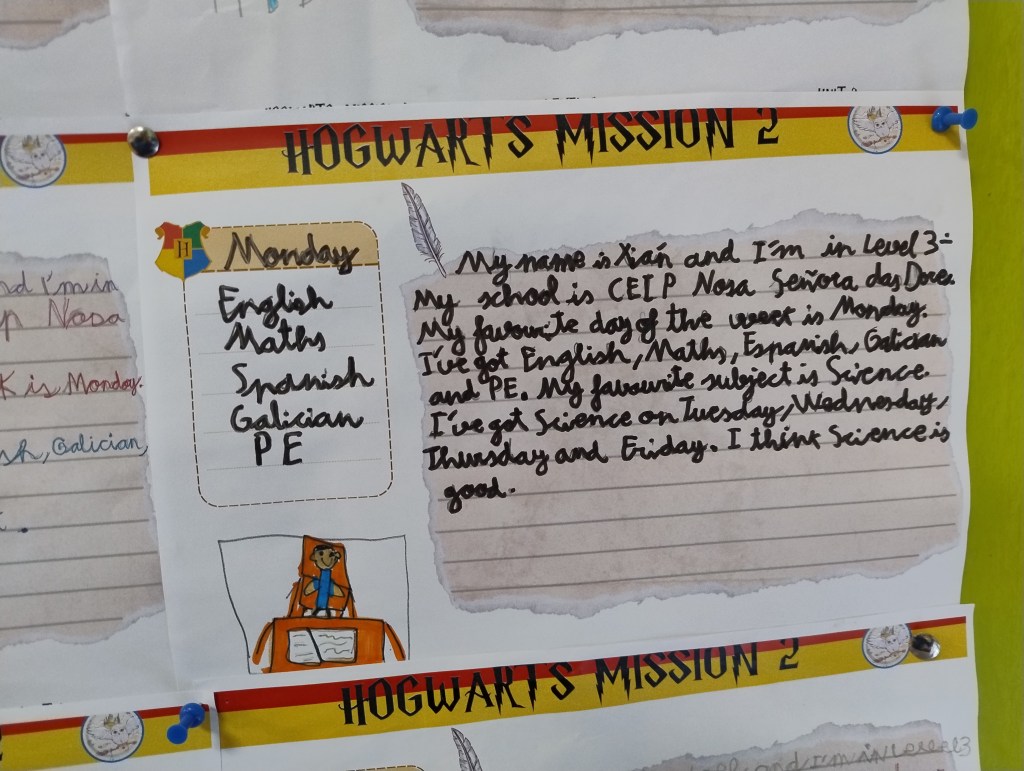 HOGWARTS MISSION 2
Monday
English
Maths
Spanish
Galician
PE
My name is Xián and I'm in Level 3.
My school is CEIP Nosa Señora das Dores.
My favourite day of the week is Monday.
I've got English, Maths, Espanish, Galician
and PE. My favourite subject is Science.
I've got Science on Tuesday, Wednesday,
Thursday and Friday. I think Science is
good.
nd I'm in
p Nosa
K is Monday.
sh, Galician,
HOGWARTS MISSION 2
and I'm in Level 3